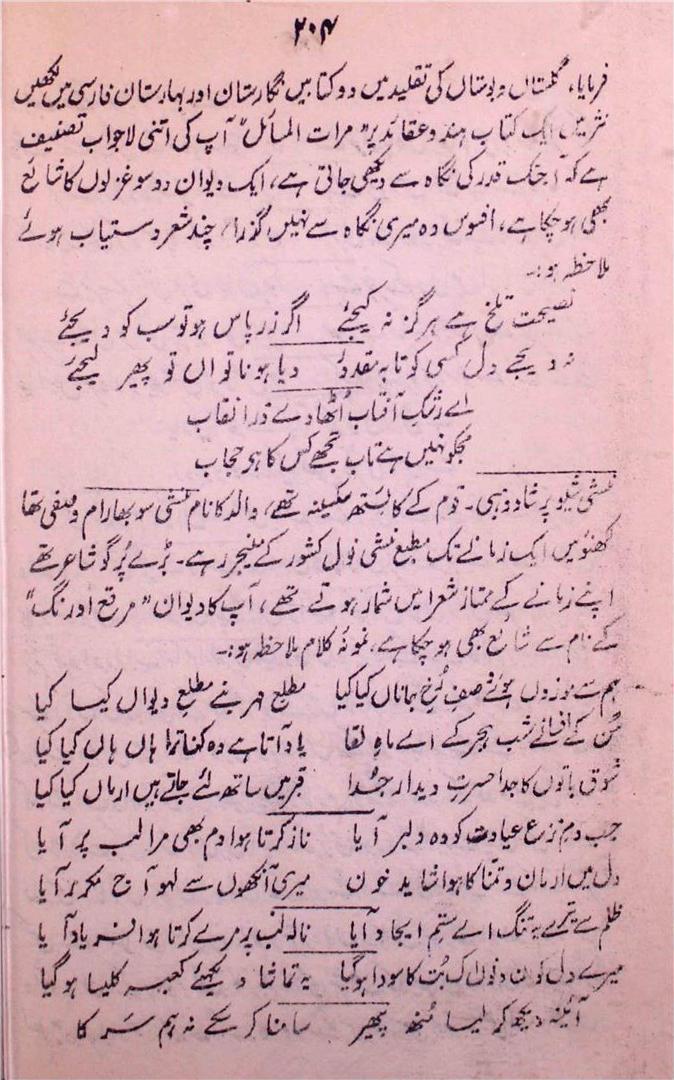 ۲۰۴
فرمایا، گلستاں و بوستاں کی تقلید میں دو کتابیں نگارستان اور بہارستان فارسی میں لکھیں
نثر میں ایک کتاب ہندو عقائد پر "مرات المسائل" آپ کی اتنی لاجواب تصنیف
ہے کہ آجتک قدر کی نگاہ سے دیکھی جاتی ہے، ایک دیوان دو سو غزلوں کا شائع
بھی ہو چکا ہے، افسوس وہ میری نگاہ سے نہیں گذرا، چند شعر دستیاب ہوئے
ملاحظہ ہو:۔
نصیحت تلخ ہے ہرگز نہ کیجئے اگر زر پاس ہو تو سب کو دیجئے
نہ دیجے دل کسی کو تا بہ مقدور دیا ہو ناتواں تو پھر لیجئے
اے رشک آفتاب اُٹھا دے ذرا نقاب
مجکو نہیں ہے تاب تجھے کس کا ہو حجاب
منشی شیو پرشاد وہبی۔ قوم کے کایستھ سکسینہ تھے، والد کا نام منشی سوبھارام وصفی تھا
لکھنؤ میں ایک زمانے تک مطبع منشی نول کشور کے منیجر رہے۔ بڑے پُر گو شاعر تھے
اپنے زمانے کے ممتاز شعرا میں شمار ہوتے تھے، آپ کا دیوان "مرقع اورنگ"
کے نام سے شائع بھی ہو چکا ہے، نمونۂ کلام ملاحظہ ہو:۔
ہم سے موزوں ہوئے وصفِ رُخِ جاناں کیا کیا مطلع مہر بنے مطلعِ دیواں کیسا کیا
سُن کے افسانے شب ہجر کے اے ماہِ لقا یاد آتا ہے وہ کہنا ترا ہاں ہاں کیا کیا
شوق باتوں کا جدا حسرتِ دیدار جُدا قبر میں ساتھ لئے جاتے ہیں ارماں کیا کیا
جب دمِ نزع عیادت کو وہ دلبر آیا ناز کرتا ہوا دم بھی مرا لب پر آیا
دل میں ارمان و تمنا کا ہوا شاید خون میری آنکھوں سے لہو آج مکرر آیا
ظلم سے تیرے بہ تنگ اے ستم ایجاد آیا نالہ لب پر مرے کرتا ہوا فریاد آیا
میرے دل کو ان دنوں اک بُت کا سودا ہو گیا یہ تماشا دیکھئے کعبہ کلیسا ہو گیا
آئینہ دیکھ کر لیا مُنھ پھیر سامنا کر سکے نہ ہم سر کا